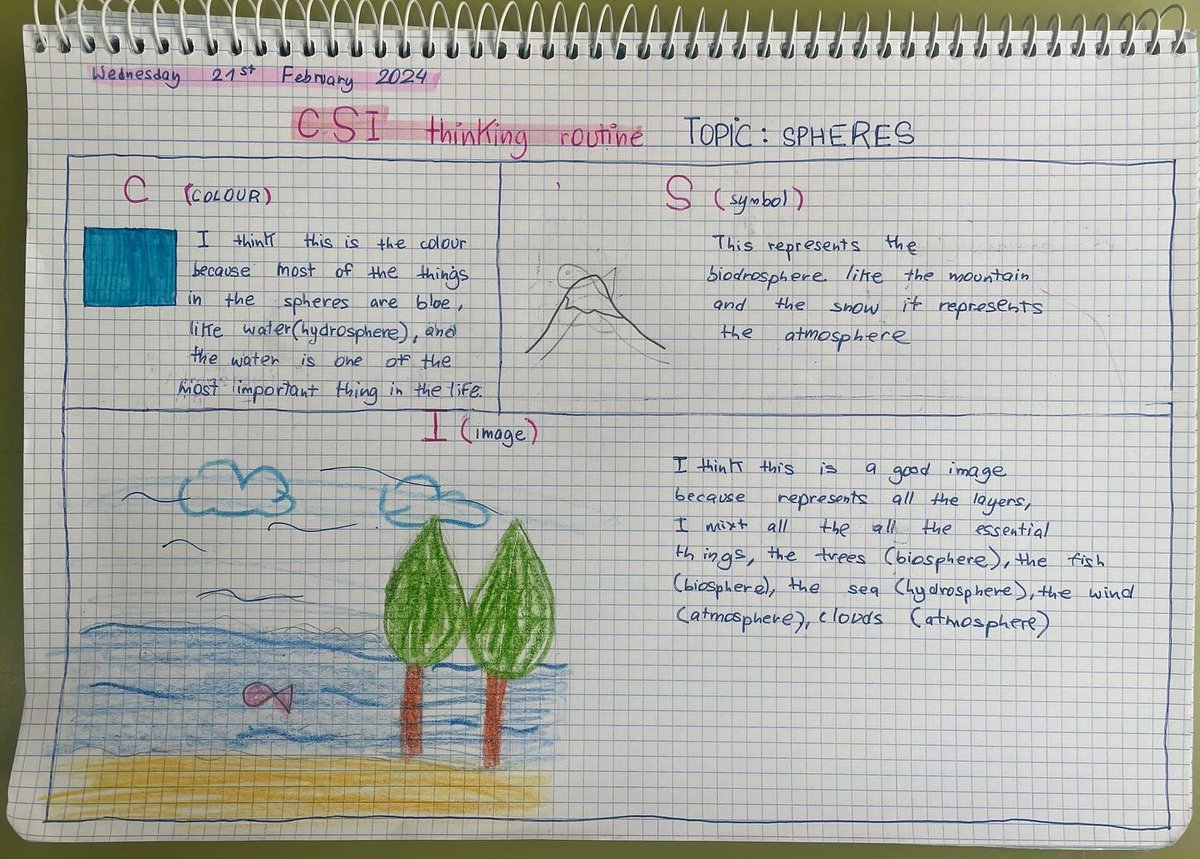 Wednesday 21st February 2024
CSI thinking routine TOPIC: SPHERES
C (COLOUR)
I think this is the colour
because most of the things
in the spheres are blue,
like water(hydrosphere), and
the water is one of the
most important thing in the life.
S (symbol)
This represents the
biodrosphere like the mountain
and the snow it represents
the atmosphere
I (image)
I think this is a good image
because represents all the layers,
I mixt all the all the essential
things, the trees (biosphere), the fish
(biosphere), the sea (hydrosphere), the wind
(atmosphere), clouds (atmosphere)